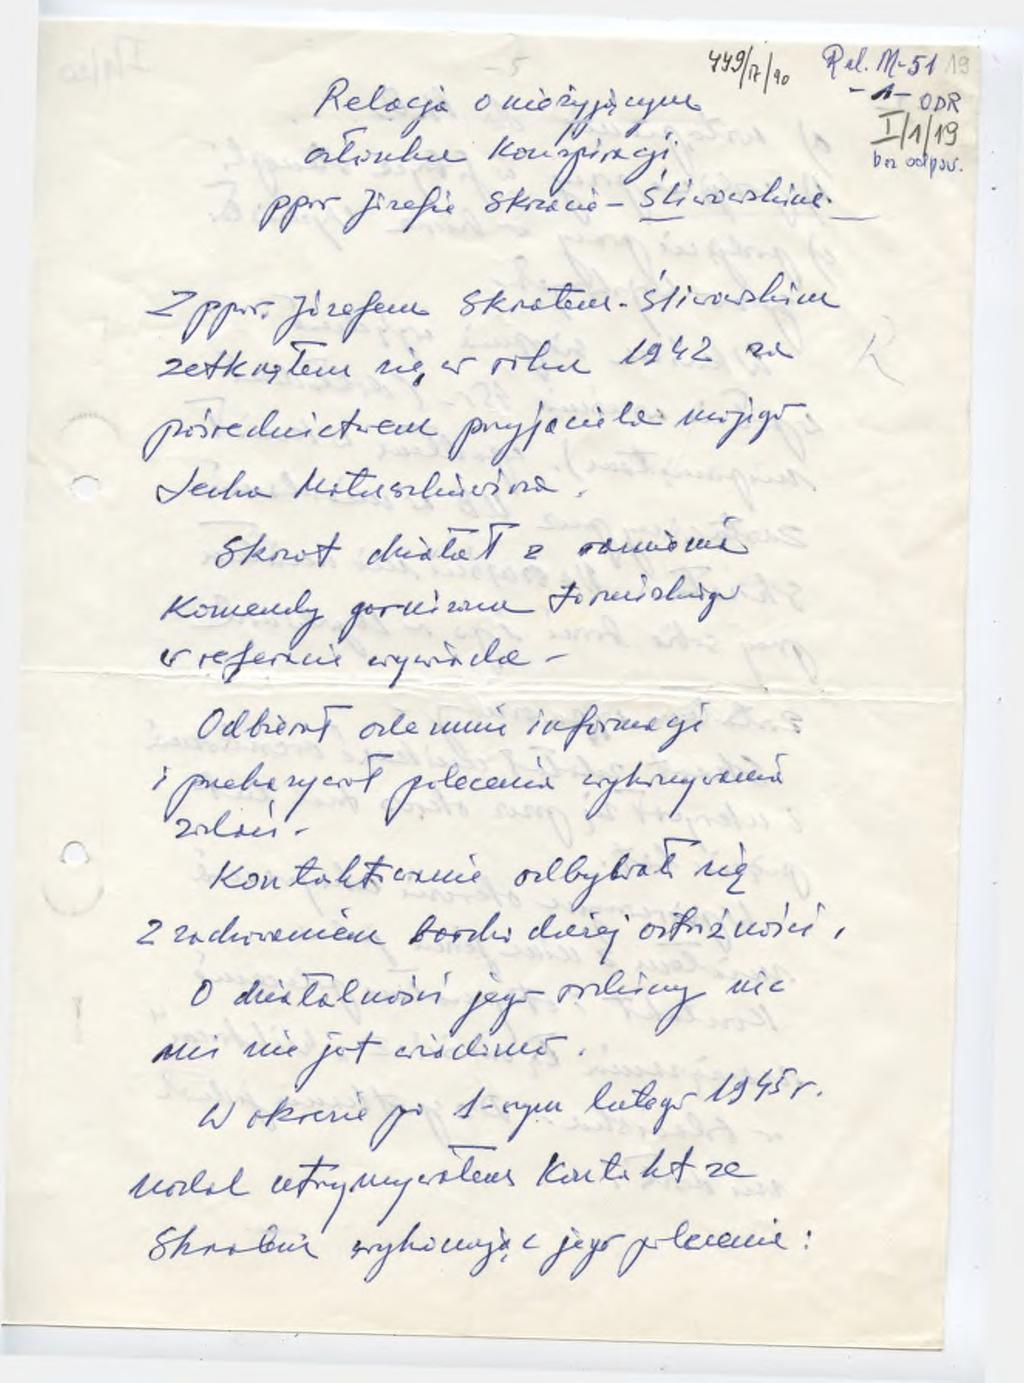 449/17/90
Rel. M-51 19
-1- ODR
I/1/19
bez odpow.
Relacja o nieżyjącym
członku Konspiracji
ppor Józefie Skracie-Śliwowskim.
Z ppor. Józefem Skratem-Śliwowskim
zetknąłem się w roku 1942 za
pośrednictwem przyjaciela mojego
Lecha Matuszkiewicza.
Skrat działał z ramienia
Komendy garnizonu toruńskiego
w referacie wywiadu -
Odbierał odemnie informacji
i przekazywał polecenia wykonywania
zdań.
Kontaktowanie odbywało się
z zachowaniem bardzo dużej ostrożności,
O działalności jego rodziny nic
mi nie jest wiadomo.
W okresie po 1-wym lutego 1945 r.
nadal utrzymywałem Kontakt ze
Skratem wykonując jego polecenie: